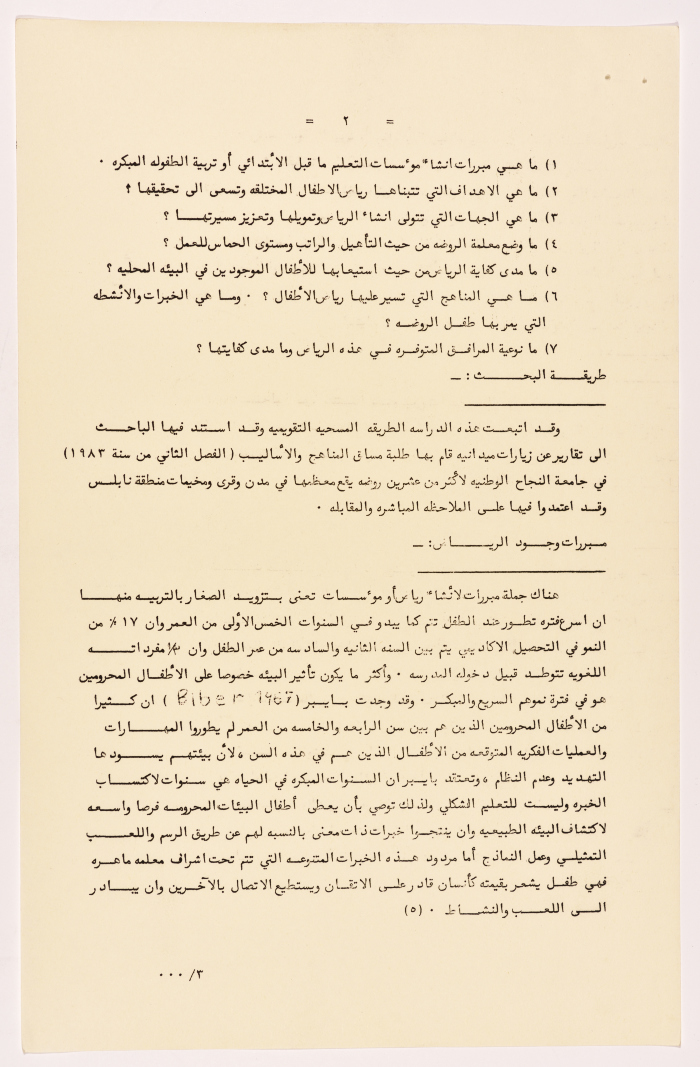 = ٢ =
١) ما هــي مبررات انشاء مؤسسات التعليم ما قبل الأبتدائي أو تربية الطفوله المبكره .
٢) ما هي الاهداف التي تتبناهــا رياض الاطفال المختلفه وتسعى الى تحقيقهـا ؟
٣) ما هي الجهات التي تتولى انشاء الرياض وتمويلها وتعزيز مسيرتهــــا ؟
٤) ما وضع معلمة الروضه من حيث التأهيل والراتب ومستوى الحماس للعمل ؟
٥) ما مدى كفاية الرياض من حيث استيعابهـا للأطفال الموجودين في البيئه المحليه ؟
٦) مــا هـــي المناهج التي تسير عليها رياض الأطفال ؟ . ومـا هي الخبرات والأنشطه
التي يمر بهـا طفــل الروضــه ؟
٧) ما نوعية المرافــق المتوفره فــي هذه الرياض وما مدى كفايتهـا ؟
طريقــــة البحــــــث : ـــ
وقــد اتبعــت هذه الدراسه الطريقه المسحيه التقويميه وقــد اســتند فيهـا الباحــث
الى تقارير عن زيارات ميدانيه قام بهـا طلبة مساق المناهج والأساليــب ( الفصل الثاني من سنة ١٩٨٣ )
في جامعة النجاح الوطنيه لأكثر من عشرين روضه يقع معظمهـا في مدن وقرى ومخيمات منطقة نابلــس
وقــد اعتمدوا فيهـا علــى الملاحظه المباشره والمقابله .
مــبررات وجــود الريــــاض : ـــ
هناك جملة مبررات لأنشاء رياض أو مؤسسات تعنى بــتزويــد الصغار بالتربيــه منهــــا
ان اسرع فتره تطــور عند الطفل تتم كما يبدو فــي السنوات الخمس الأولى من العمر وان ١٧ ٪ من
النمو في التحصيل الاكاديمي يتم بين السنه الثانيه والسادسه من عمر الطفل وان مفرداتــــه
اللغويه تتوطــد قبيل دخوله المدرسه . وأكثر ما يكون تأثير البيئه خصوصا على الأطفــال المحرومين
هو في فترة نموهم السريع والمبكــر . وقد وجدت بــايــبر ( Biber 1967 ) ان كــثيرا
من الأطفال المحرومين الذين هم بين سن الرابعه والخامسه من العمر لم يطوروا المهــــارات
والعمليات الفكريه المتوقعه من الأطفــال الذين هــم في هذه السن ، لأن بيئتهــم يســـودهـا
التهديد وعدم النظام ، وتعتقد بايـبر ان السنوات المبكره في الحياه هي سنوات لاكتســـاب
الخبره وليست للتعليم الشكلي ولذلك توصي بأن يعطى أطفال البيئات المحرومه فرصا واسعه
لاكتشاف البيئه الطبيعيه وان ينتجــوا خبرات ذات معنى بالنسبه لهم عن طريق الرسم واللعــــب
التمثيلــي وعمل النماذج أما مردود هــذه الخبرات المتنوعــه التي تتم تحت اشراف معلمه ماهـره
فهي طفــل يشعر بقيمته كأنسان قادر علــى الاتقــان ويستطيع الاتصال بالآخرين وان يبــادر
الـــى اللعـــب والنشــاط . (٥)
٣/ ...